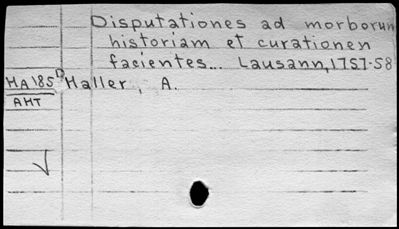 Disputationes ad morborum
historiam et curationen
facientes... Lausann, 1757-58
HA185D Haller, A.
AHT